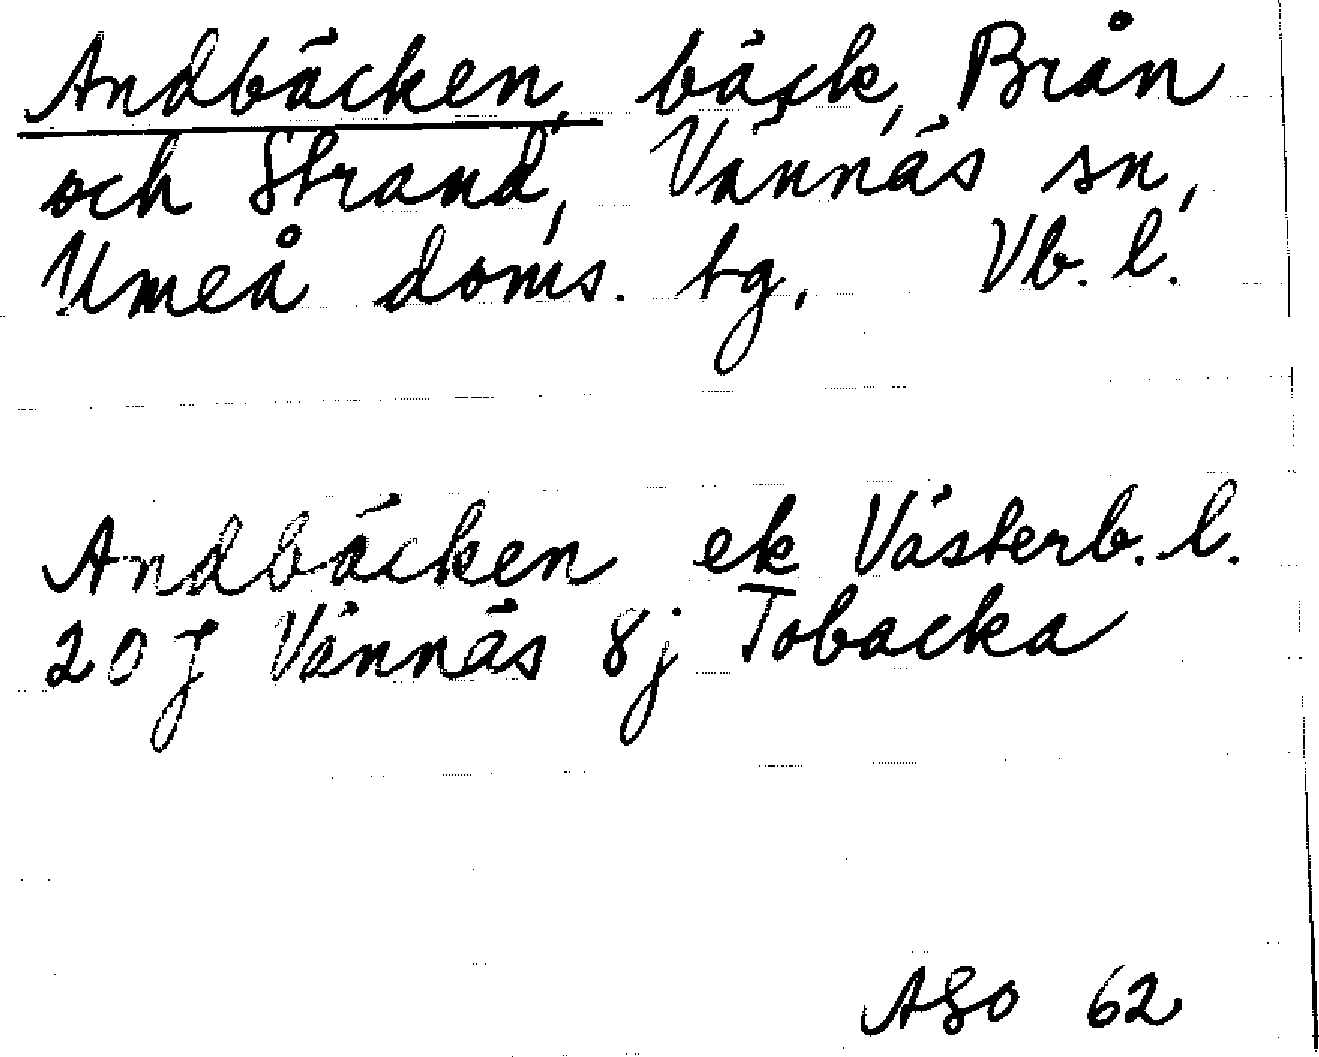 Andbäcken, bäck, Brån
och Strand, Vännäs sn,
Umeå doms. tg. Vb. l.
Andbäcken ek Västerb. l.
20 J Vännäs 8j Tobacka
ASO 62